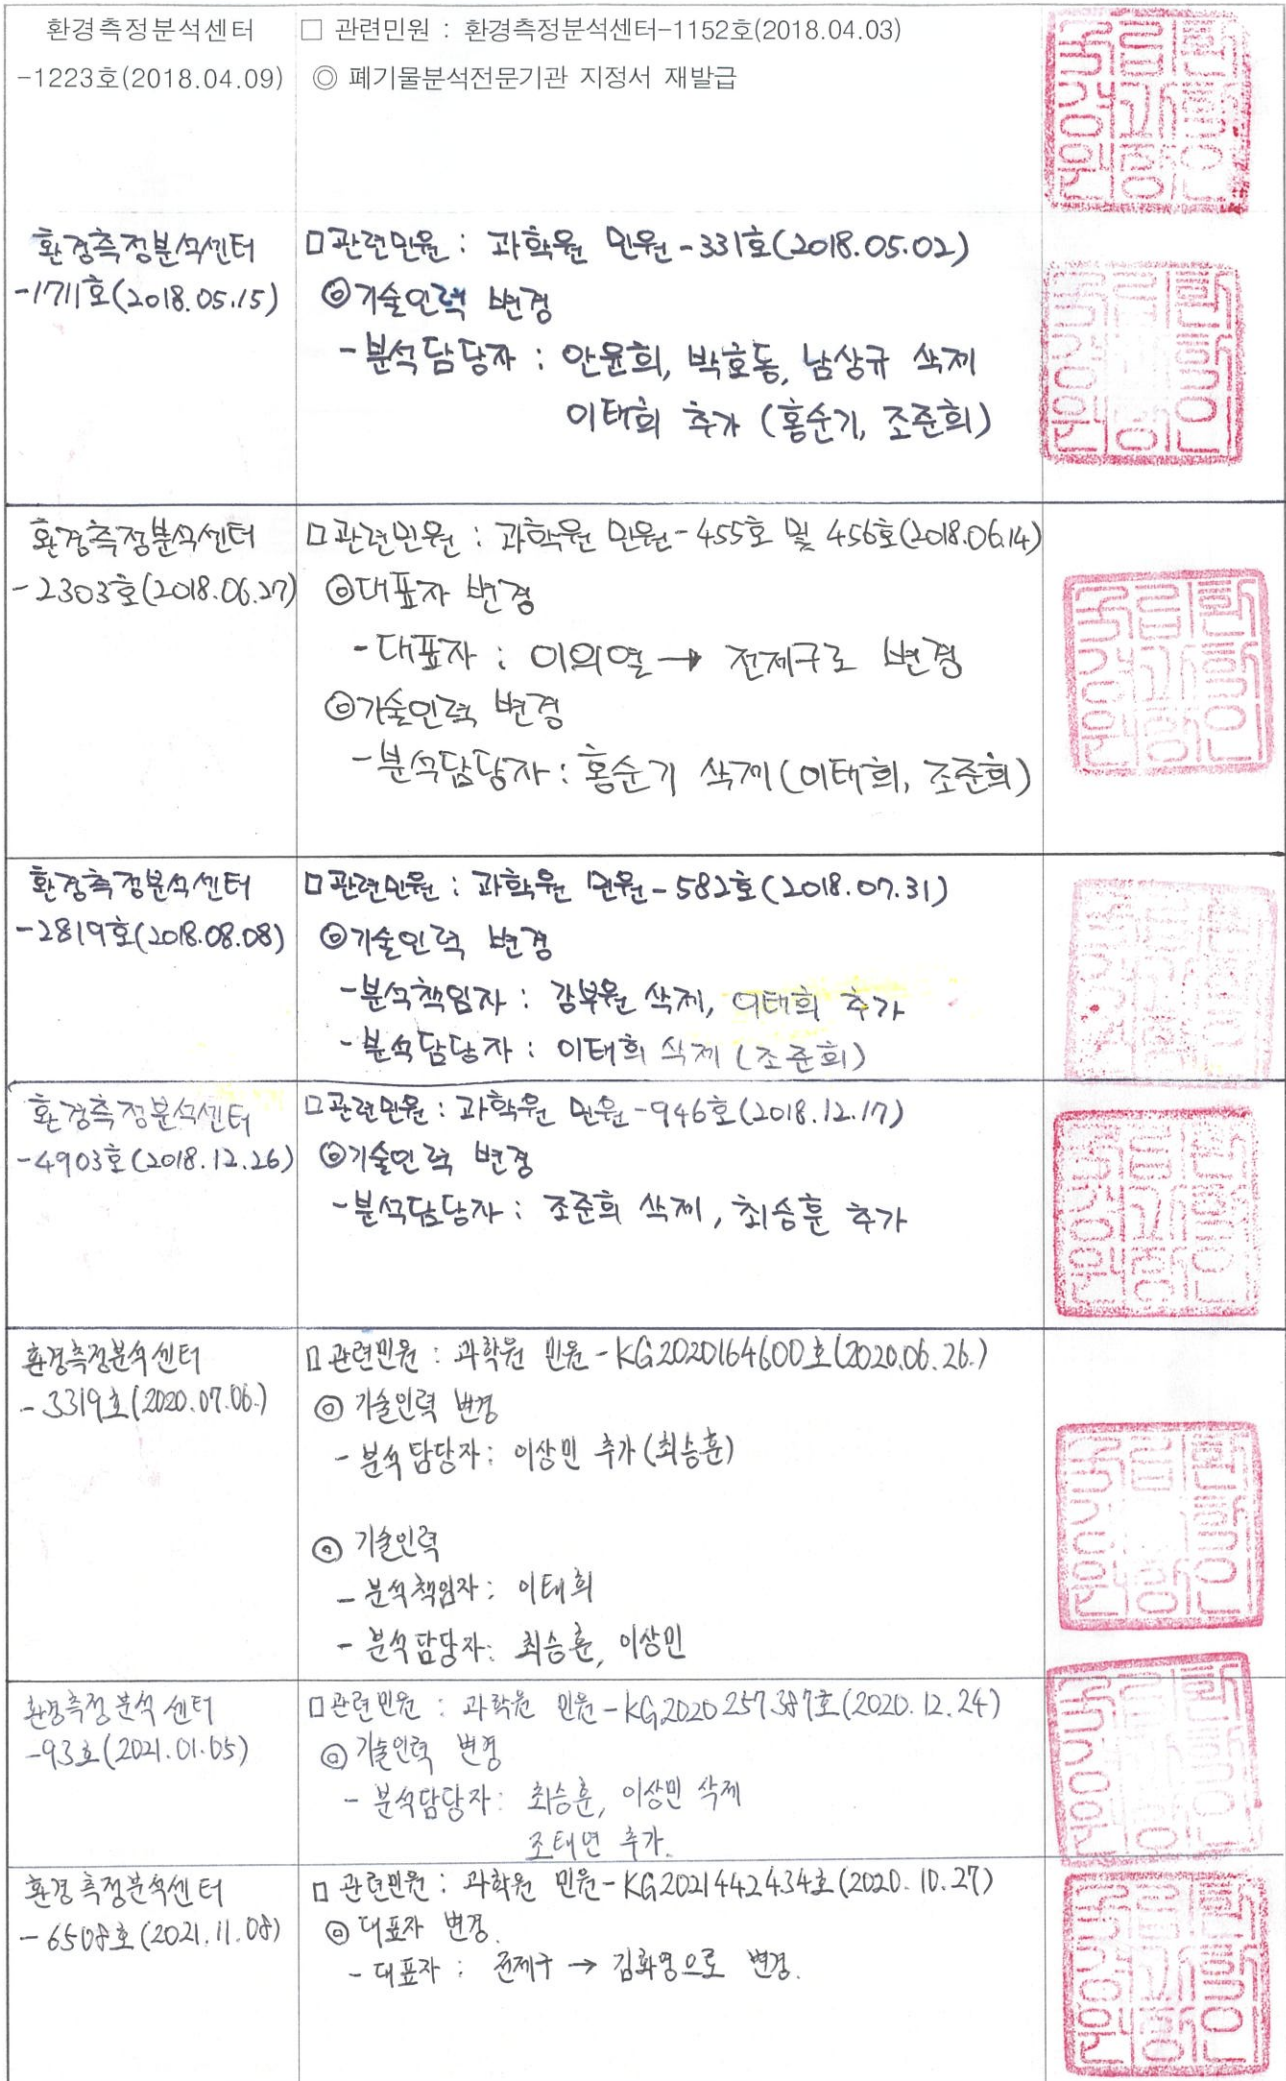 환경측정분석센터
-1223호(2018.04.09)
□ 관련민원 : 환경측정분석센터-1152호(2018.04.03)
◎ 폐기물분석전문기관 지정서 재발급
환경측정분석센터
-1711호(2018.05.15)
□관련민원 : 과학원 민원-331호(2018.05.02)
◎기술인력 변경
-분석담당자 : 안윤희, 박호동, 남상규 삭제
이태희 추가 (홍순기, 조준희)
환경측정분석센터
-2303호(2018.06.27)
□관련민원 : 과학원 민원-455호 및 456호(2018.06.14)
◎대표자 변경
-대표자 : 이의열 → 전제구로 변경
◎기술인력 변경
-분석담당자 : 홍순기 삭제(이태희, 조준희)
환경측정분석센터
-2819호(2018.08.08)
□관련민원 : 과학원 민원-582호(2018.07.31)
◎기술인력 변경
-분석책임자 : 강부원 삭제, 이태희 추가
-분석담당자 : 이태희 삭제 (조준희)
환경측정분석센터
-4903호(2018.12.26)
□관련민원 : 과학원 민원-946호(2018.12.17)
◎기술인력 변경
-분석담당자 : 조준희 삭제, 최승훈 추가
환경측정분석센터
- 3319호(2020.07.06.)
□ 관련민원 : 과학원 민원-KG2020164600호(2020.06.26.)
◎ 기술인력 변경
- 분석담당자 : 이상민 추가(최승훈)
◎ 기술인력
- 분석책임자 : 이태희
- 분석담당자 : 최승훈, 이상민
환경측정분석센터
-93호(2021.01.05)
□관련민원 : 과학원 민원-KG2020257387호(2020.12.24)
◎ 기술인력 변경
- 분석담당자 : 최승훈, 이상민 삭제
조태연 추가.
환경측정분석센터
- 6508호(2021.11.08)
□ 관련민원 : 과학원 민원-KG2021442434호(2020.10.27)
◎ 대표자 변경.
- 대표자 : 전제구 → 김화영으로 변경.
국립환경과학원장인